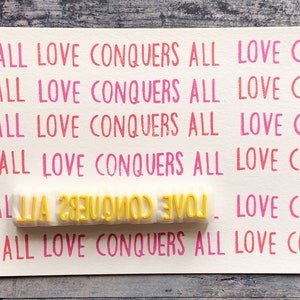 ALL LOVE CONQUERS ALL LOVE C
ALL LOVE CONQUERS ALL LOVE C
ALL LOVE CONQUERS ALL LOVE C
ALL LOVE CONQUERS ALL LOVE
A LOVE CONQUERS ALL LOVE C
ALL LOVE CONQUERS ALL LOVE C